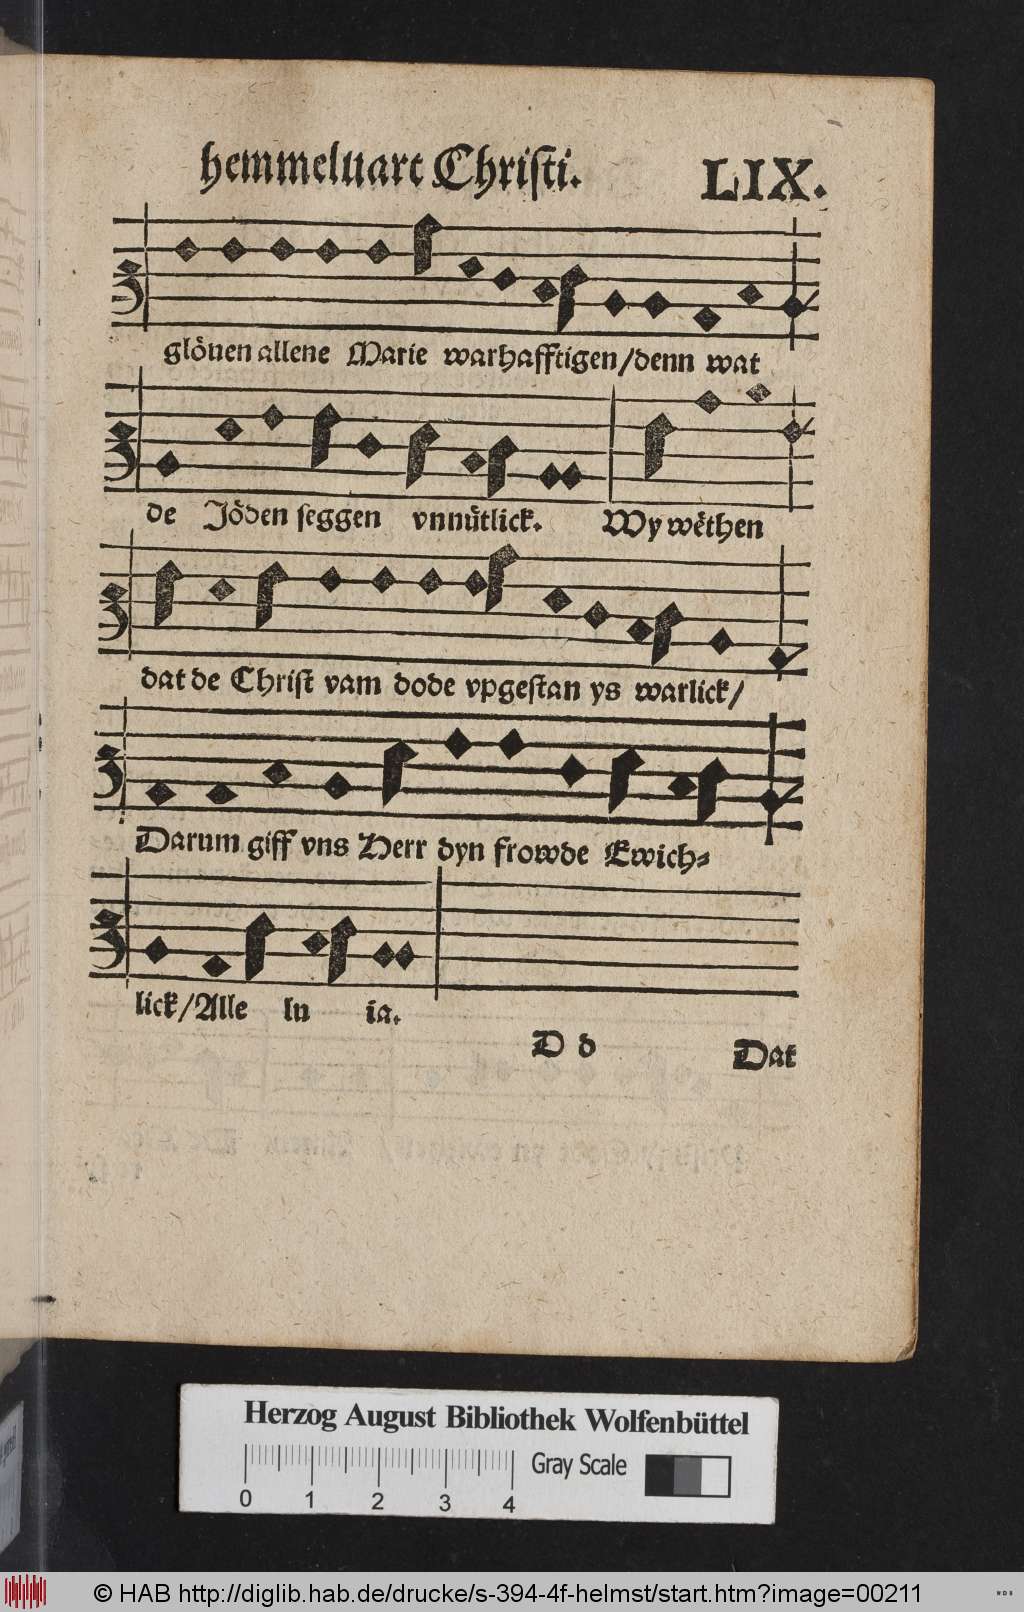 hemmeluart Christi. LIX.
glöuen allene Marie warhafftigen/denn wat
de Jöden seggen vnnütlick. Wy wethen
dat de Christ vam dode vpgestan ys warlick/
Darum giff vns Herr dyn frowde Ewich⸗
lick/Alle lu ia.
D d Dat
Herzog August Bibliothek Wolfenbüttel
Gray Scale
0 1 2 3 4
© HAB http://diglib.hab.de/drucke/s-394-4f-helmst/start.htm?image=00211